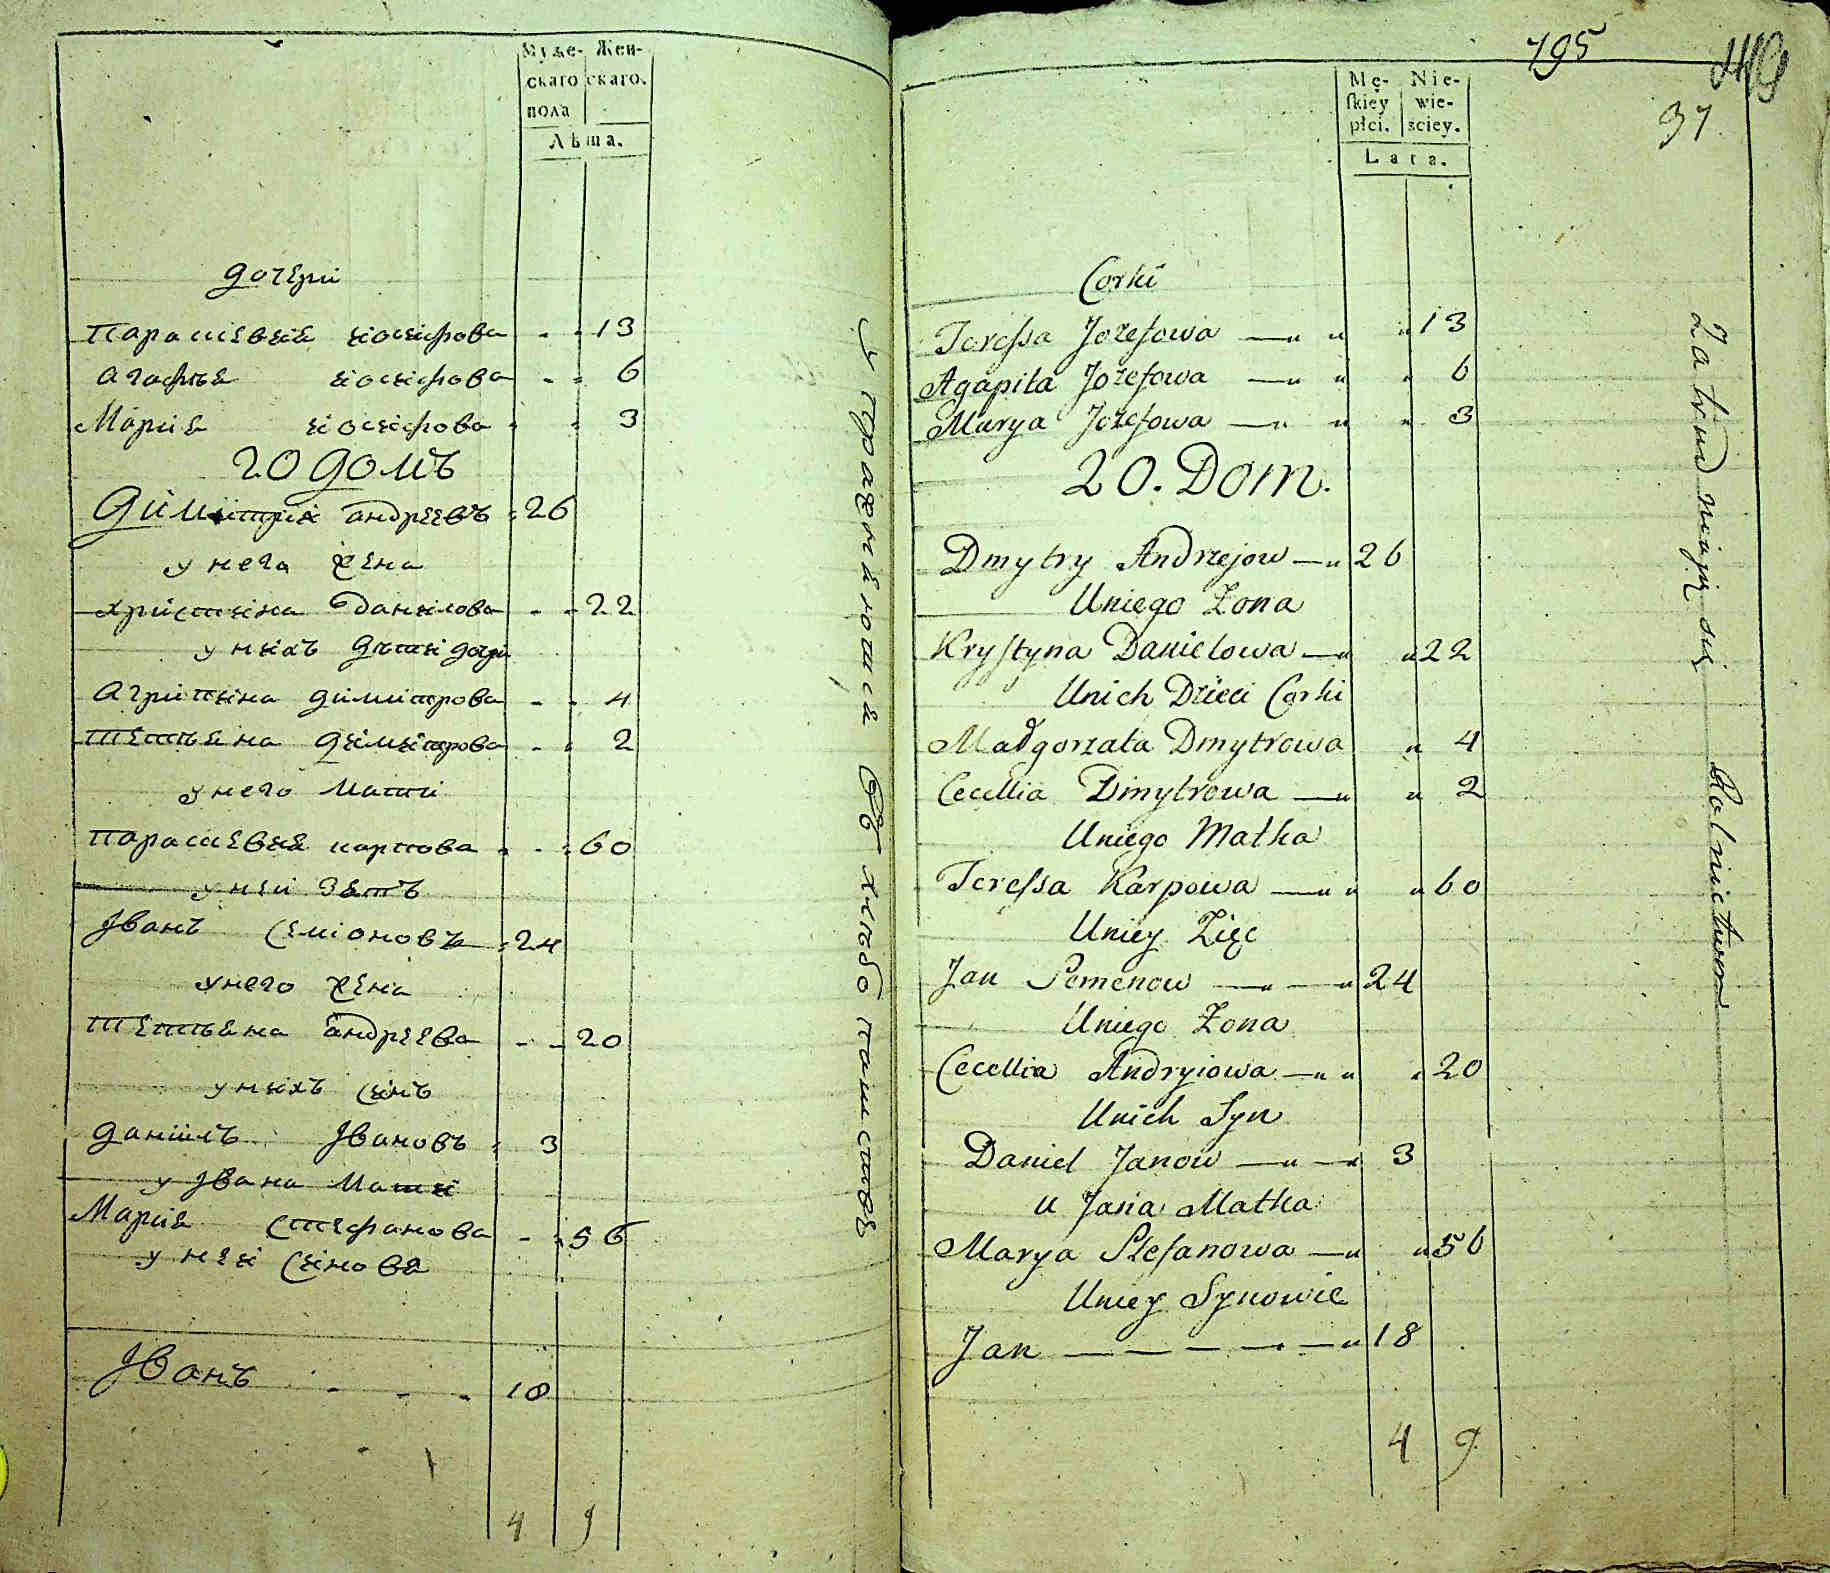 Муже- Жен-
скаго скаго.
пола
Лѣта.
дочери
Парасцевия иосифова - - 13
агафия иосифова - - 6
Мария иосифова - - 3
20 домъ
Димитрий андреевъ - 26
у него жена
христина данилова - - 22
у нихъ дети дочери
агрипина димитрова - - 4
тетьяна димитрова - - 2
у него мати
парасцевия карпова - - 60
у ней зять
Іванъ семіоновъ - 24
у него жена
тетьяна андреева - - 20
у нихъ синъ
даниилъ Івановъ - 3
у Івана мати
Мария стефанова - - 56
у ней синове
Іванъ - - - 18
4 9
упражняються въ хлебопашстве
195
37
Mę- Nie-
skiey wie-
płci. sciey.
Lata.
Corki
Teressa Jozefowa — 13
Agapita Jozefowa — 6
Marya Jozefowa — 3
20. Dom.
Dmytry Andrzejow — 26
Uniego Zona
Krystyna Danielowa — 22
Unich Dzieci Corki
Małgorzata Dmytrowa 4
Cecellia Dmytrowa — 2
Uniego Matka
Teressa Karpowa — 60
Uniey Zięc
Jan Semenow — — 24
Uniego Zona
Cecellia Andryiowa — 20
Unich Syn
Daniel Janow — — 3
u Jana Matka
Marya Stefanowa — 56
Uniey Synowie
Jan — — — — — 18
4 9
Zatrudniają się Rolnictwem